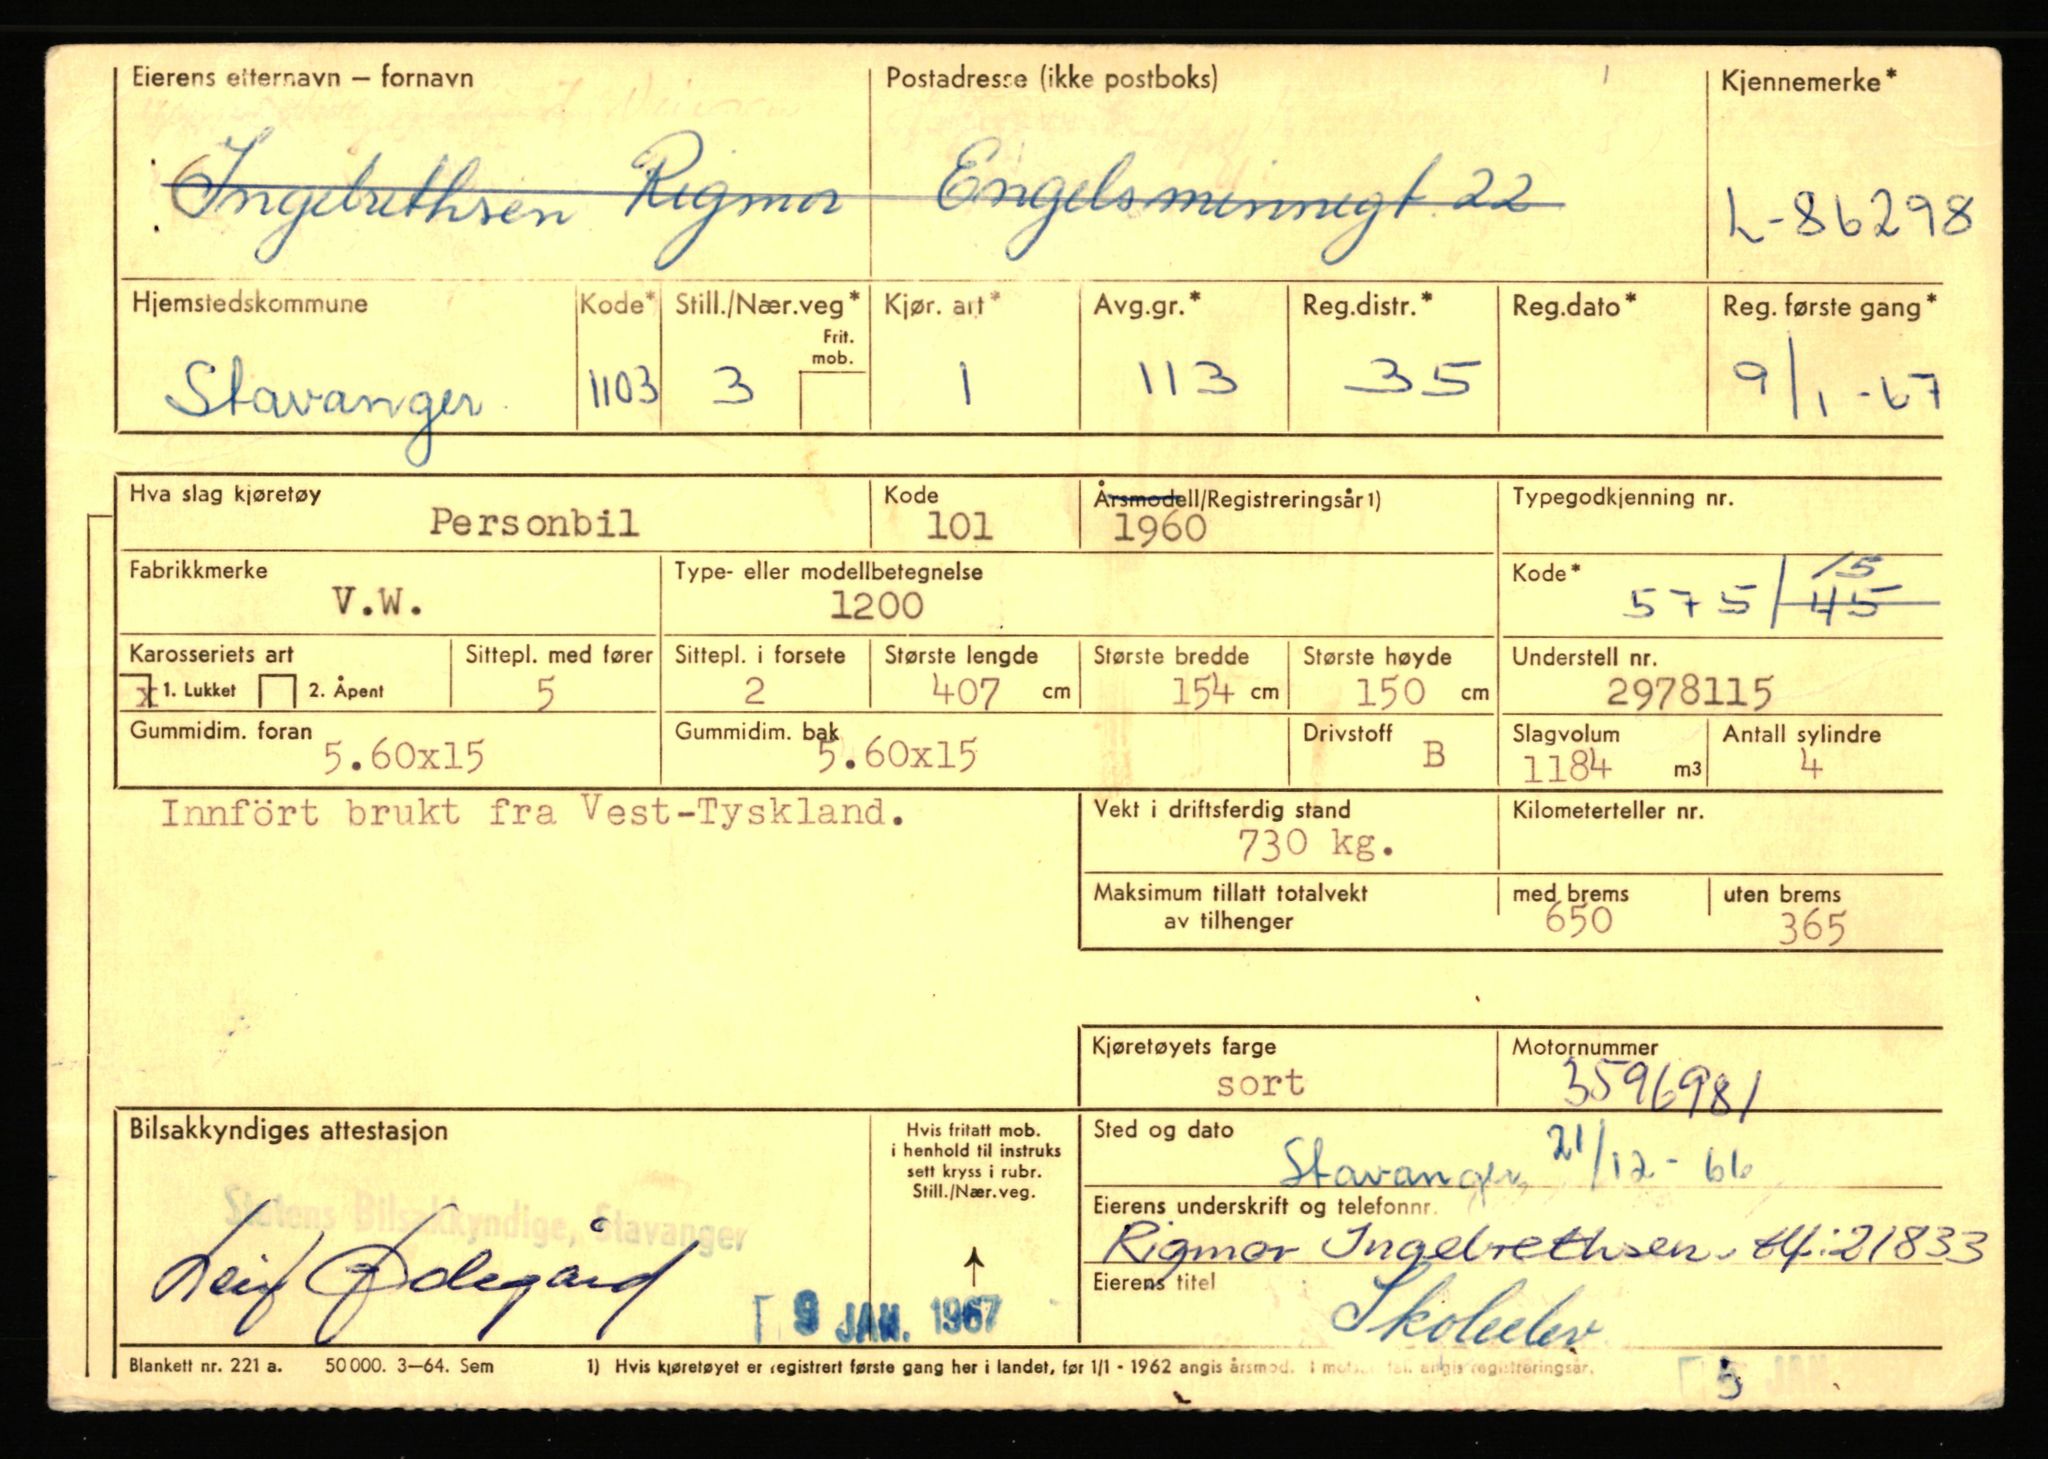 Eierens etternavn – fornavn Postadresse (ikke postboks) Kjennemerke*
Ingebrethsen Rigmor Engelsminnegt. 22 L-86298
Hjemstedskommune Kode* Still./Nær.veg* Kjør. art* Avg.gr.* Reg.distr.* Reg.dato* Reg. første gang*
Frit. mob.
Stavanger 1103 3 1 113 35 9/1-67
Hva slag kjøretøy Kode Årsmodell/Registreringsår 1) Typegodkjenning nr.
Personbil 101 1960
Fabrikkmerke Type- eller modellbetegnelse Kode*
15
V.W. 1200 575/45
Karosseriets art Sittepl. med fører Sittepl. i forsete Største lengde Største bredde Største høyde Understell nr.
x 1. Lukket 2. Åpent 5 2 407 cm 154 cm 150 cm 2978115
Gummidim. foran Gummidim. bak Drivstoff Slagvolum Antall sylindre
5.60x15 5.60x15 B 1184 m3 4
Innfört brukt fra Vest-Tyskland.
Vekt i driftsferdig stand Kilometerteller nr.
730 kg.
Maksimum tillatt totalvekt med brems uten brems
av tilhenger 650 365
Kjøretøyets farge Motornummer
sort 3596981
Bilsakkyndiges attestasjon
Hvis fritatt mob.
i henhold til instruks
sett kryss i rubr.
Still./Nær.veg.
Sted og dato
Stavanger, 21/12-66
Statens Bilsakkyndige, Stavanger
Leif Ødegård
9 JAN. 1967
Eierens underskrift og telefonnr.
Rigmor Ingebrethsen. tlf: 21833
Eierens titel
Skoleelev
Blankett nr. 221 a. 50 000. 3–64. Sem 1) Hvis kjøretøyet er registrert første gang her i landet, før 1/1 - 1962 angis årsmod. I motsatt fall angis registreringsår.
5 JAN.